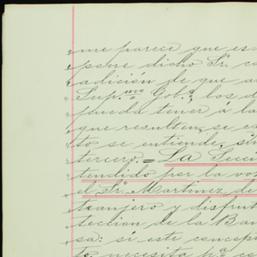 me parece que es
pone dicho Sr. co
adición de que a
Sup.mo Gob.o los d
pueda tener á la
que resulten, se ex
to se entiende, sin
tercero. = La Secci
tendido por la vo
el Sr. Martinez de
tranjero y disfrut
tección de la Ban
sa: si este concep
to necesita p.a co